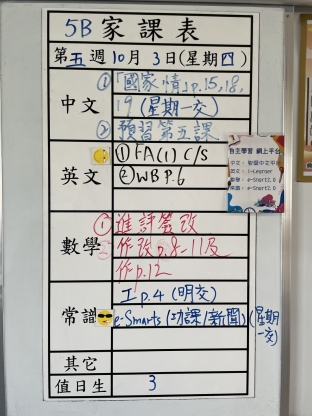 5B 家課表
第五週10月3日(星期四)
中文
①「國家情」p.15,18,
19 (星期一交)
② 預習第五課
英文
① FA(1) C/S
② WB P.6
自主學習 網上平台
中文：智愛中文平台
英文：i-Learner
數學：e-Smart2.0
常識：e-Smart2.0
數學
① 進評簽改
② 作改p.8-11及
作p.12
常識
工p.4 (明交)
e-Smarts (功課/新聞) (星期一交)
其它
值日生
3